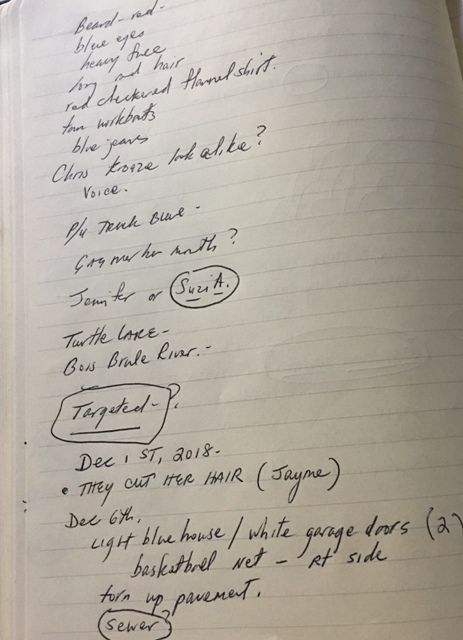 Beard - red -
blue eyes
heavy face
long red hair
red checkered flannel shirt.
tan workboots
blue jeans
Chris look alike?
Voice.
P/u Truck Blue -
over her mouth?
Jennifer or Suzi A.
Turtle LAKE -
Bois Brule River. -
Targeted - ?
Dec 1 ST, 2018.
• THEY CUT HER HAIR (Jayme)
Dec 6th.
Light blue house / white garage doors (2)
basketball net - Rt side
torn up pavement.
Sewer